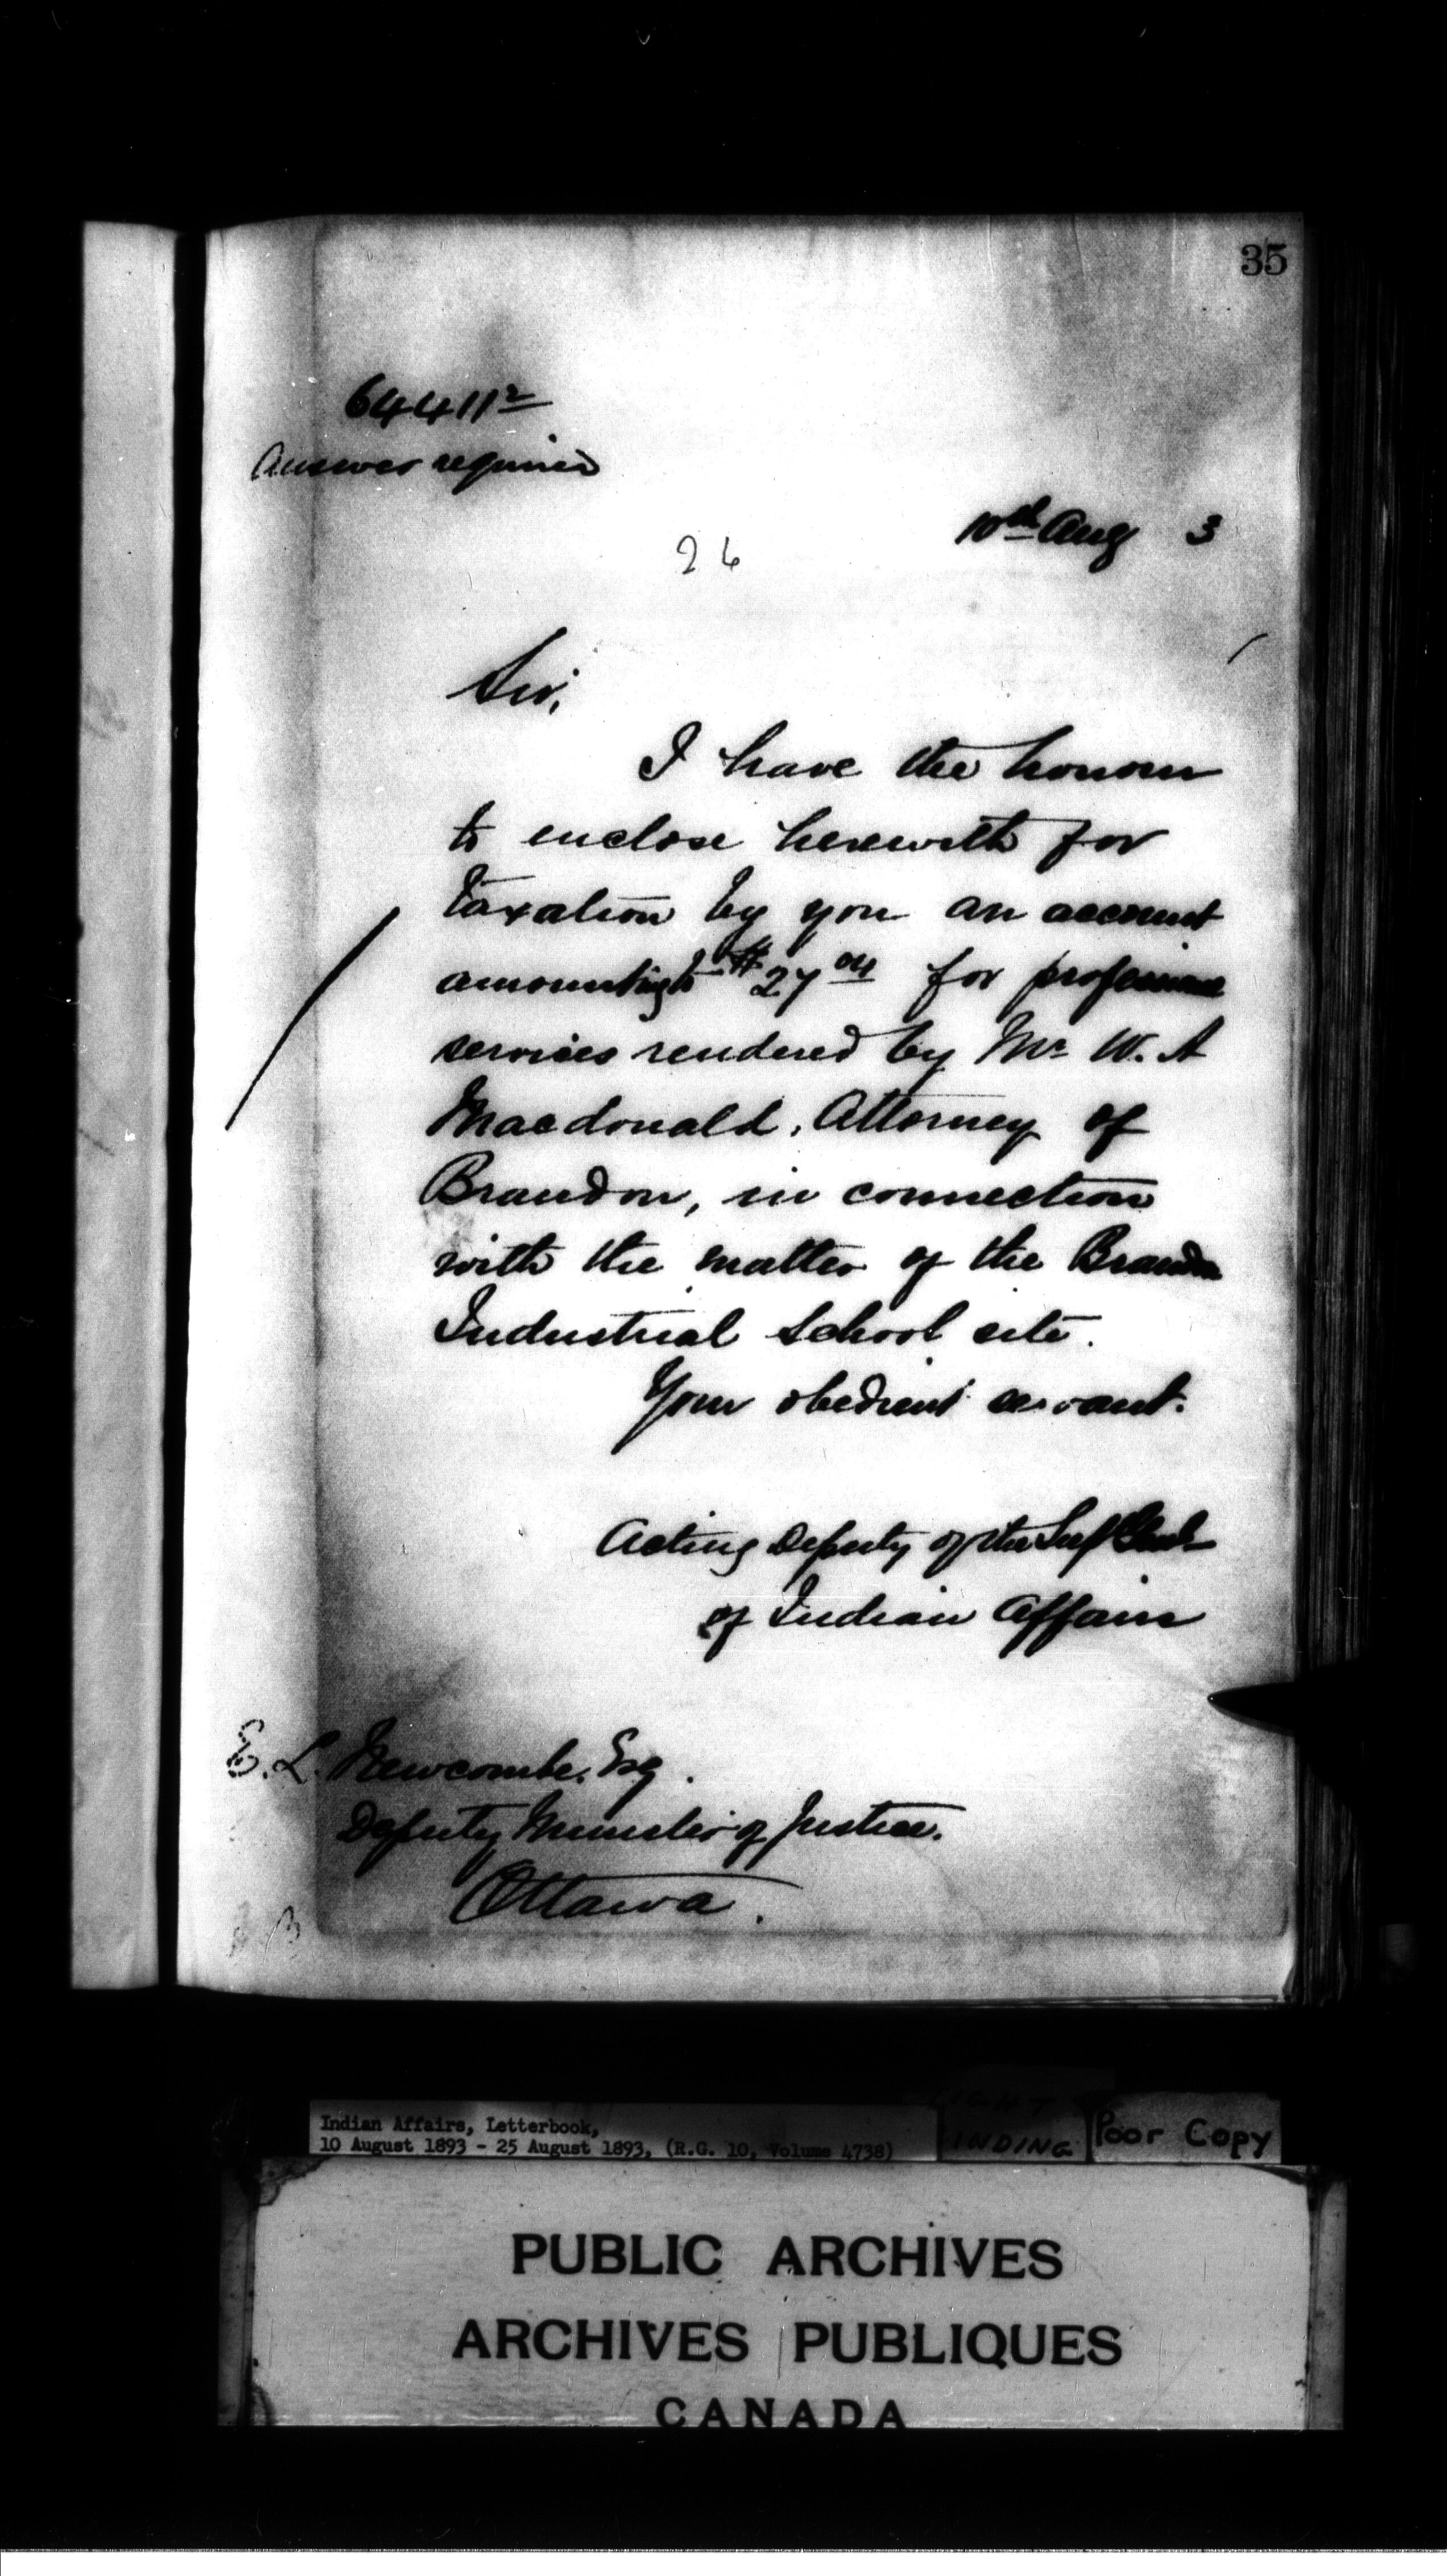 35
64411²
Answer required
10th Aug 3
26
Sir,
I have the honour
to enclose herewith for
taxation by you an account
amounting to $27 04 for professional
services rendered by Mr W. A
Macdonald, Attorney of
Brandon, in connection
with the matter of the Brandon
Industrial School site.
Your obedient servant.
Acting Deputy of the Supt Genl
of Indian Affairs
E. L. Newcombe. Esq.
Deputy Minister of Justice.
Ottawa.
Indian Affairs, Letterbook,
10 August 1893 - 25 August 1893, (R.G. 10, Volume 4738)
Poor Copy
PUBLIC ARCHIVES
ARCHIVES PUBLIQUES
CANADA